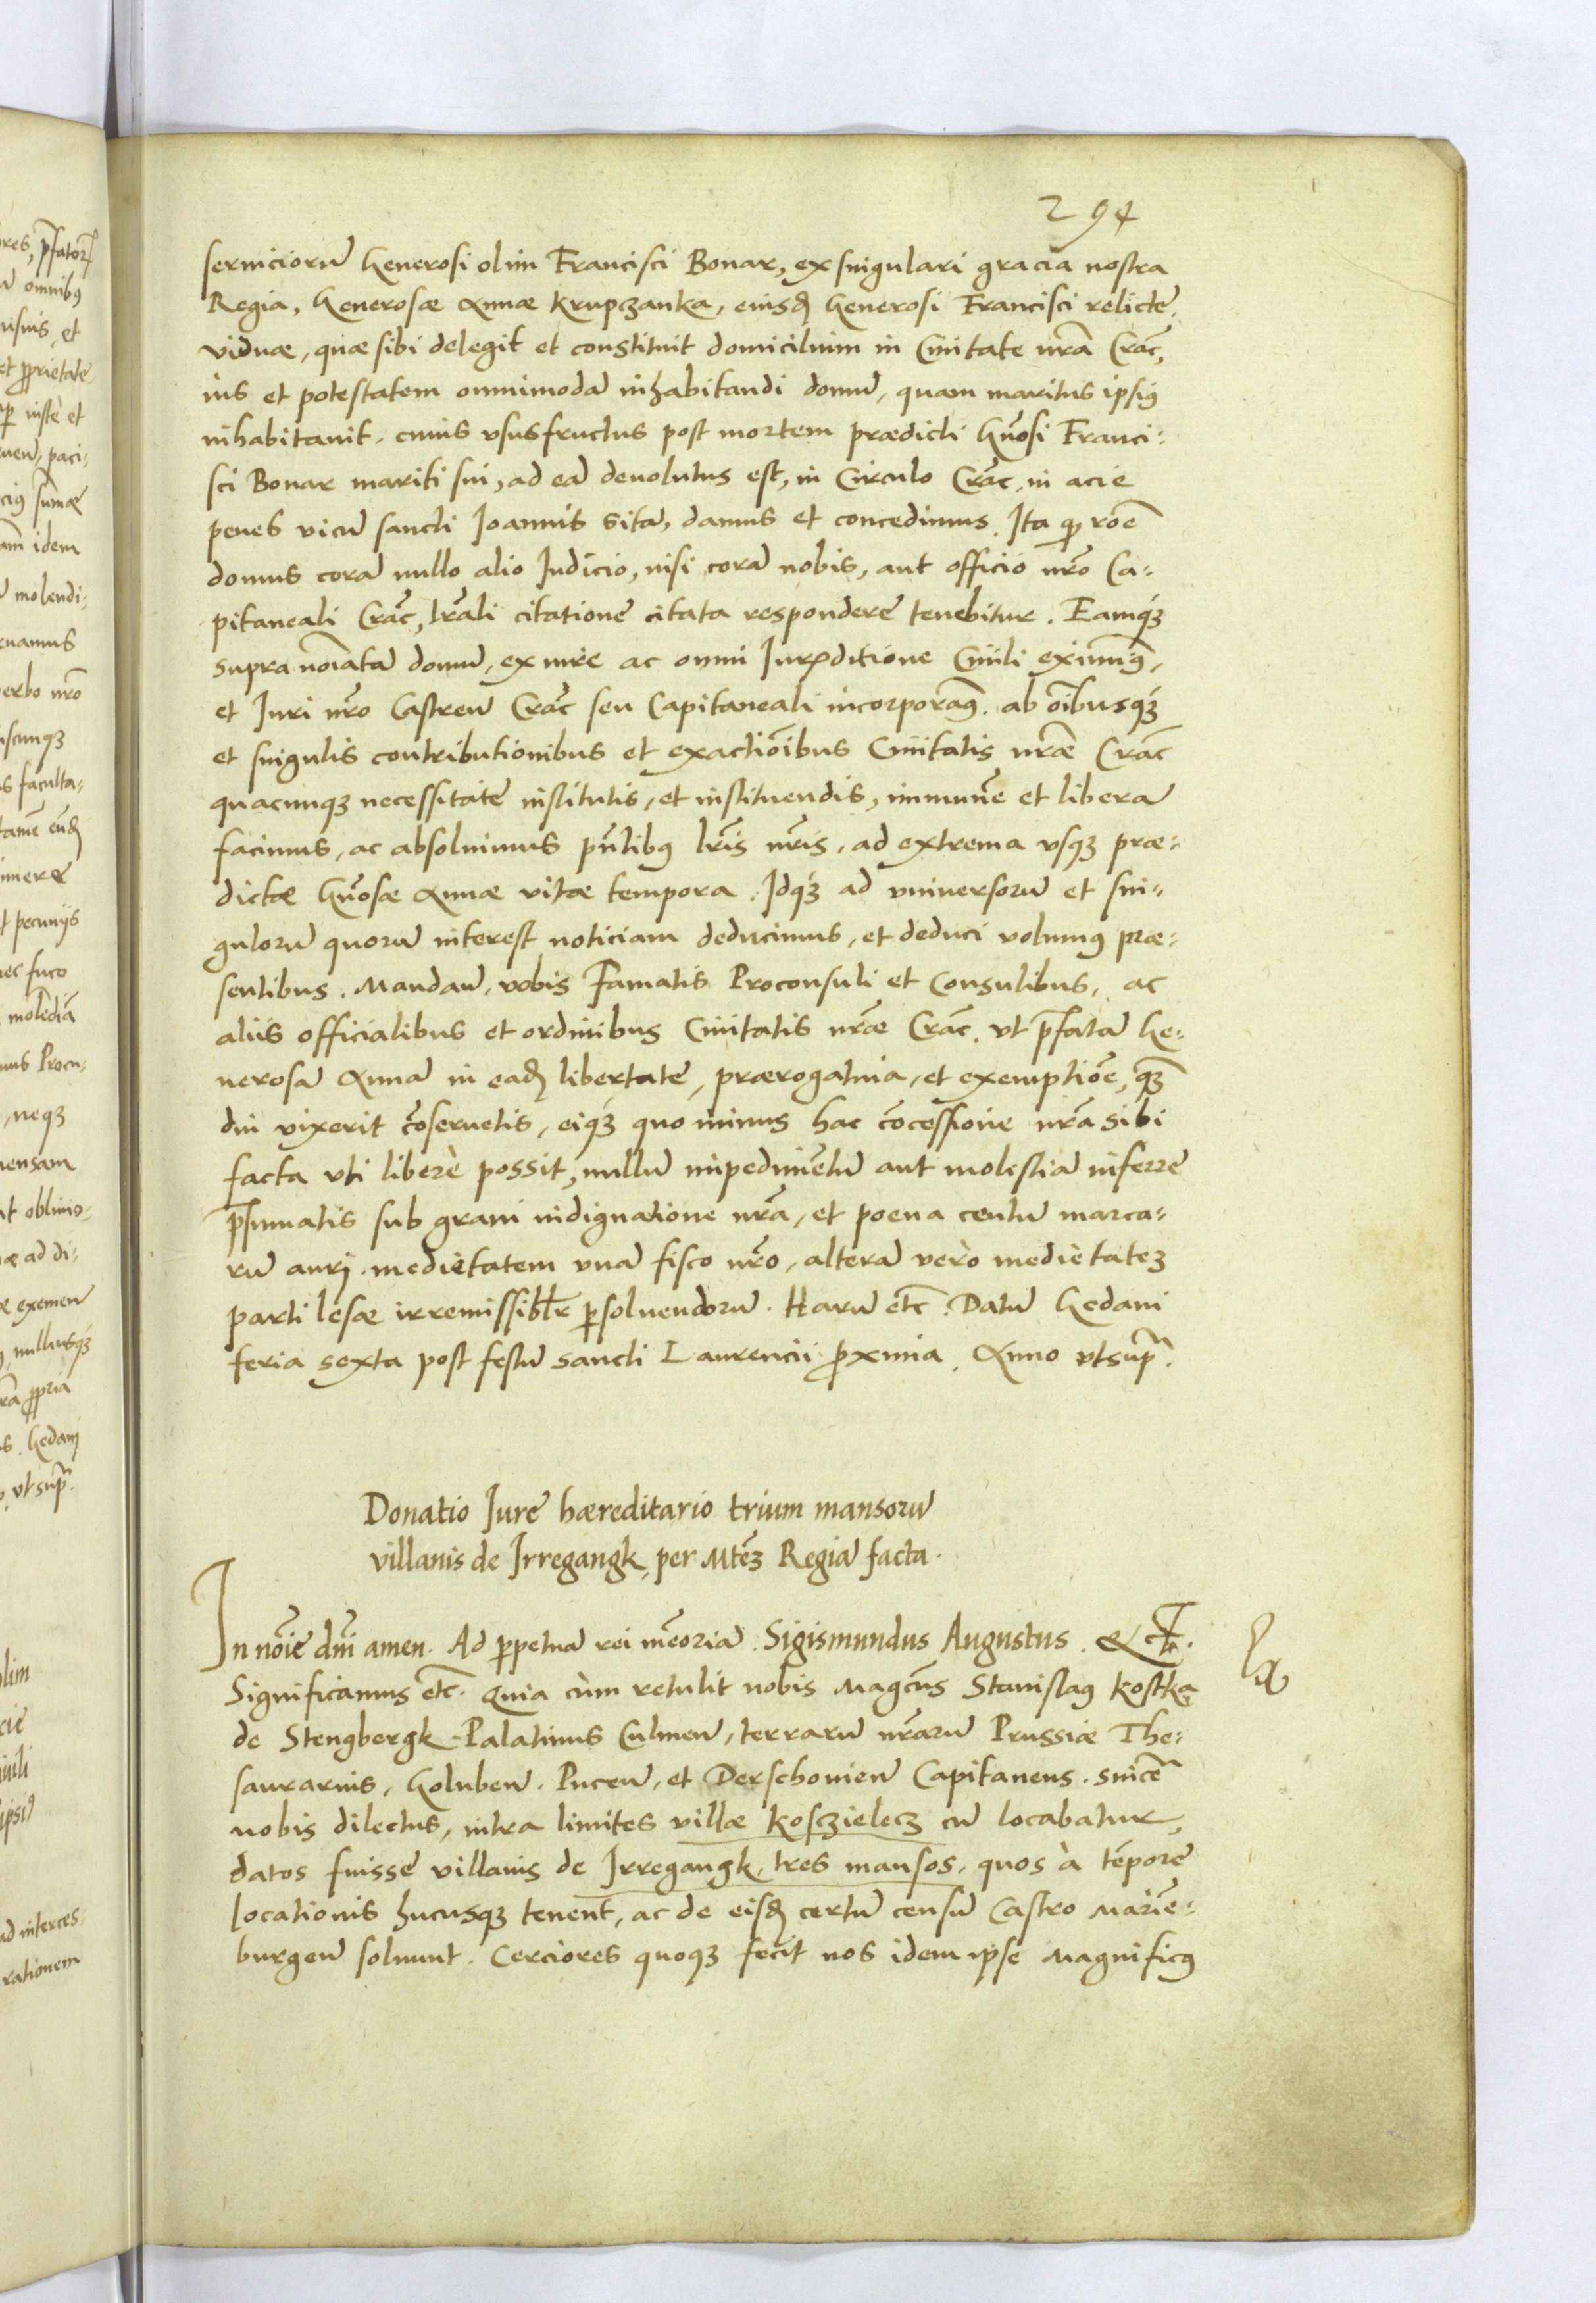 294
seruiciorũ Generosi olim Francisci Bonar, ex singulari gracia nostra
Regia, Generosæ Annæ Krupczanka, eiusd Generosi Francisci relicte
viduæ, quæ sibi delegit et constituit domicilium in Ciuitate nrã Crac̃,
ius et potestatem omnimodã inhabitandi domũ, quam maritus ipsiꝰ
inhabitauit, cuius vsusfructus post mortem prædicti Gñosi Franci-
sci Bonar mariti sui, ad eã deuolutus est, in Circulo Crac̃, in acie
penes vicũ sancti Ioannis sitã, damus et concedimus. Ita qꝫ rõe
domus corã nullo alio Iudicio, nisi corã nobis, aut officio nrõ Ca-
pitaneali Crac̃, lrãli citatione citata respondere tenebitur. Eamqꝫ
supra noĩatã domũ, ex iure ac omni Iurẏditione Ciuili eximimꝰ,
et Iuri nrõ Castreñ Crac̃ seu Capitaneali incorporamꝰ. ab oĩbusqꝫ
et singulis contributionibus et exactiõibus Ciuitatis nrãe Crac̃
quacunqꝫ necessitate institutis, et instituendis, immunẽ et liberã
facimus, ac absoluimus pñtibꝰ lrĩs nrĩs, ad extrema vsqꝫ præ-
dictæ Gñosæ Annæ vitæ tempora. Idqꝫ ad vniuersorũ et sin-
gulorũ quorũ interest noticiam deducimus, et deduci volumꝰ præ-
sentibus. Mandañ, vobis Famatis Proconsuli et Consulibus, ac
aliis officialibus et ordinibus Ciuitatis nrãe Crac̃. vt p̃fatã Ge-
nerosã Annã in eadꝫ libertate, prærogatiua, et exemptiõe, qꝫ̃
diu vixerit cõseruetis, eiqꝫ quo minus hac cõcessione nrã sibi
facta vti liberè possit, nullũ impedimẽtũ aut molestiã inferre
p̃sumatis sub graui indignatione nrã, et poena centũ marca-
rũ aurj. medietatem vnã fisco nrõ, alterã verò medietatẽ
parti lesæ irremissibłr ꝑsoluendorũ. Harũ etc̃. Datũ Gedani
feria sexta post festũ sancti Laurencii ꝓxima. Anno vtsupᷓ.
Donatio Iure hæreditario trium mansorũ
villanis de Irregangk, per Mtẽ Regiã facta.
In noĩe dnĩ amen. Ad ꝑpetuã rei mẽoriã. Sigismundus Augustus. &ct.
Significamus etc̃. Quia cùm retulit nobis Magcũs Stanislaꝰ Kostka
de Stengbergk Palatinus Culmeñ, terrarũ nrãrũ Prussiæ The-
saurarius, Golubeñ. Puceñ, et Derschouieñ Capitaneus. sincẽ
nobis dilectus, intra limites villæ Kosczielecz cũ locabatur,
datos fuisse villanis de Irregangk, tres mansos, quos à tẽpore
locationis hucusqꝫ tenent, ac de eisdꝫ certũ censũ Castro Mariẽ-
burgeñ soluunt. Cerciores quoqꝫ fecit nos idem ipse Magnificꝰ